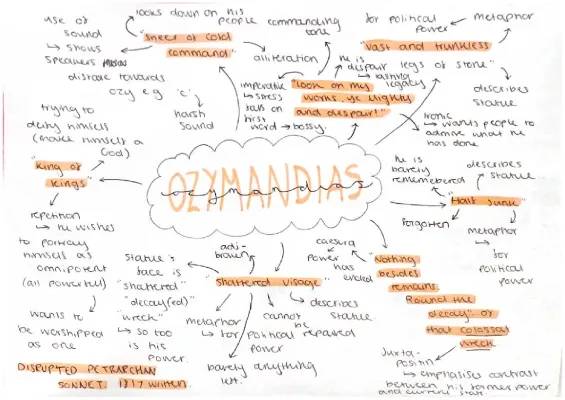 use of
sound
↳ shows
speakers
distaste towards
ozy e.g 'c'
harsh
sound
looks down on his
people
commanding
tone
"sneer of cold
command"
alliteration
for political
power
metaphor
"Vast and trunkless
legs of stone"
describes
statue
he is
despair
legacy
imperative
↳ stress
falls on
first
word → bossy.
"Look on my
works, ye Mighty
and despair!"
ironic
↳ wants people to
admire what he
has done
trying to
deify himself
(make himself a
God)
"King of
Kings"
repetition
↳ he wishes
to portray
himself as
omnipotent
(all powerful)
wants to
be worshipped
as one
OZYMANDIAS
ozymandias
he is
barely
remembered
describes
statue
"Half sunk"
forgotten
metaphor
for
political
power
statue's
face is
"shattered"
"decay(ed)"
"wreck"
↳ so too
is his
power.
adj-
broken
"shattered visage"
metaphor
↳ for political
power
cannot
be
repaired
describes
statue
barely anything
left.
caesura
power
has
ended
"Nothing
besides
remains.
Round the
decay" of
that colossal
wreck
Juxta-
position
↳ emphasises contrast
between his former power
and current state
DISRUPTED PETRARCHAN
SONNET. 1817 written.